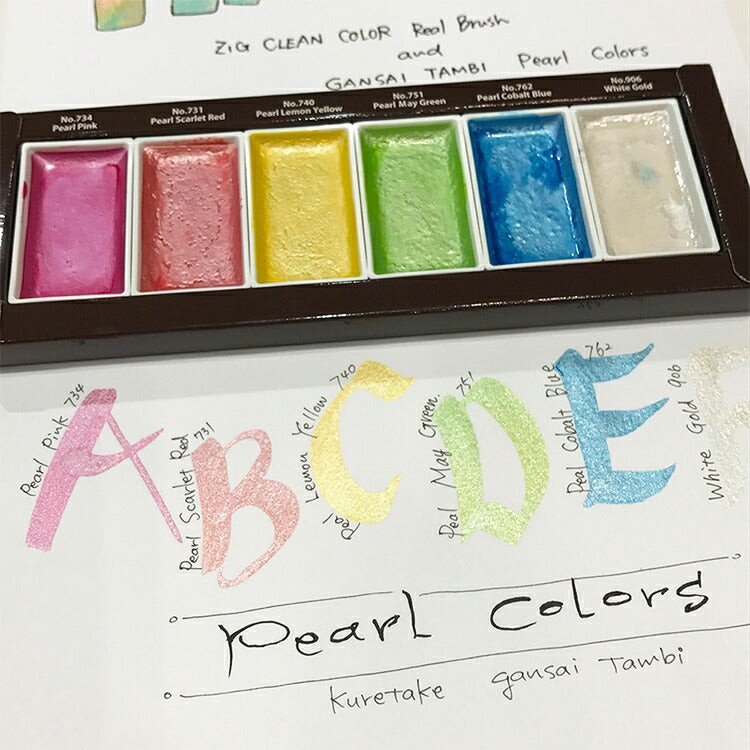 ZIG CLEAN COLOR Real Brush
and
GANSAI TAMBI Pearl Colors
No.734
Pearl Pink
No.731
Pearl Scarlet Red
No.740
Pearl Lemon Yellow
No.751
Pearl May Green
No.762
Pearl Cobalt Blue
No.906
White Gold
A
Pearl Pink 734
B
Pearl Scarlet Red 731
C
Peal Lemon Yellow 740
D
Peal May Green 751
E
Peal Cobalt Blue 762
White Gold 906
Pearl Colors
Kuretake gansai Tambi